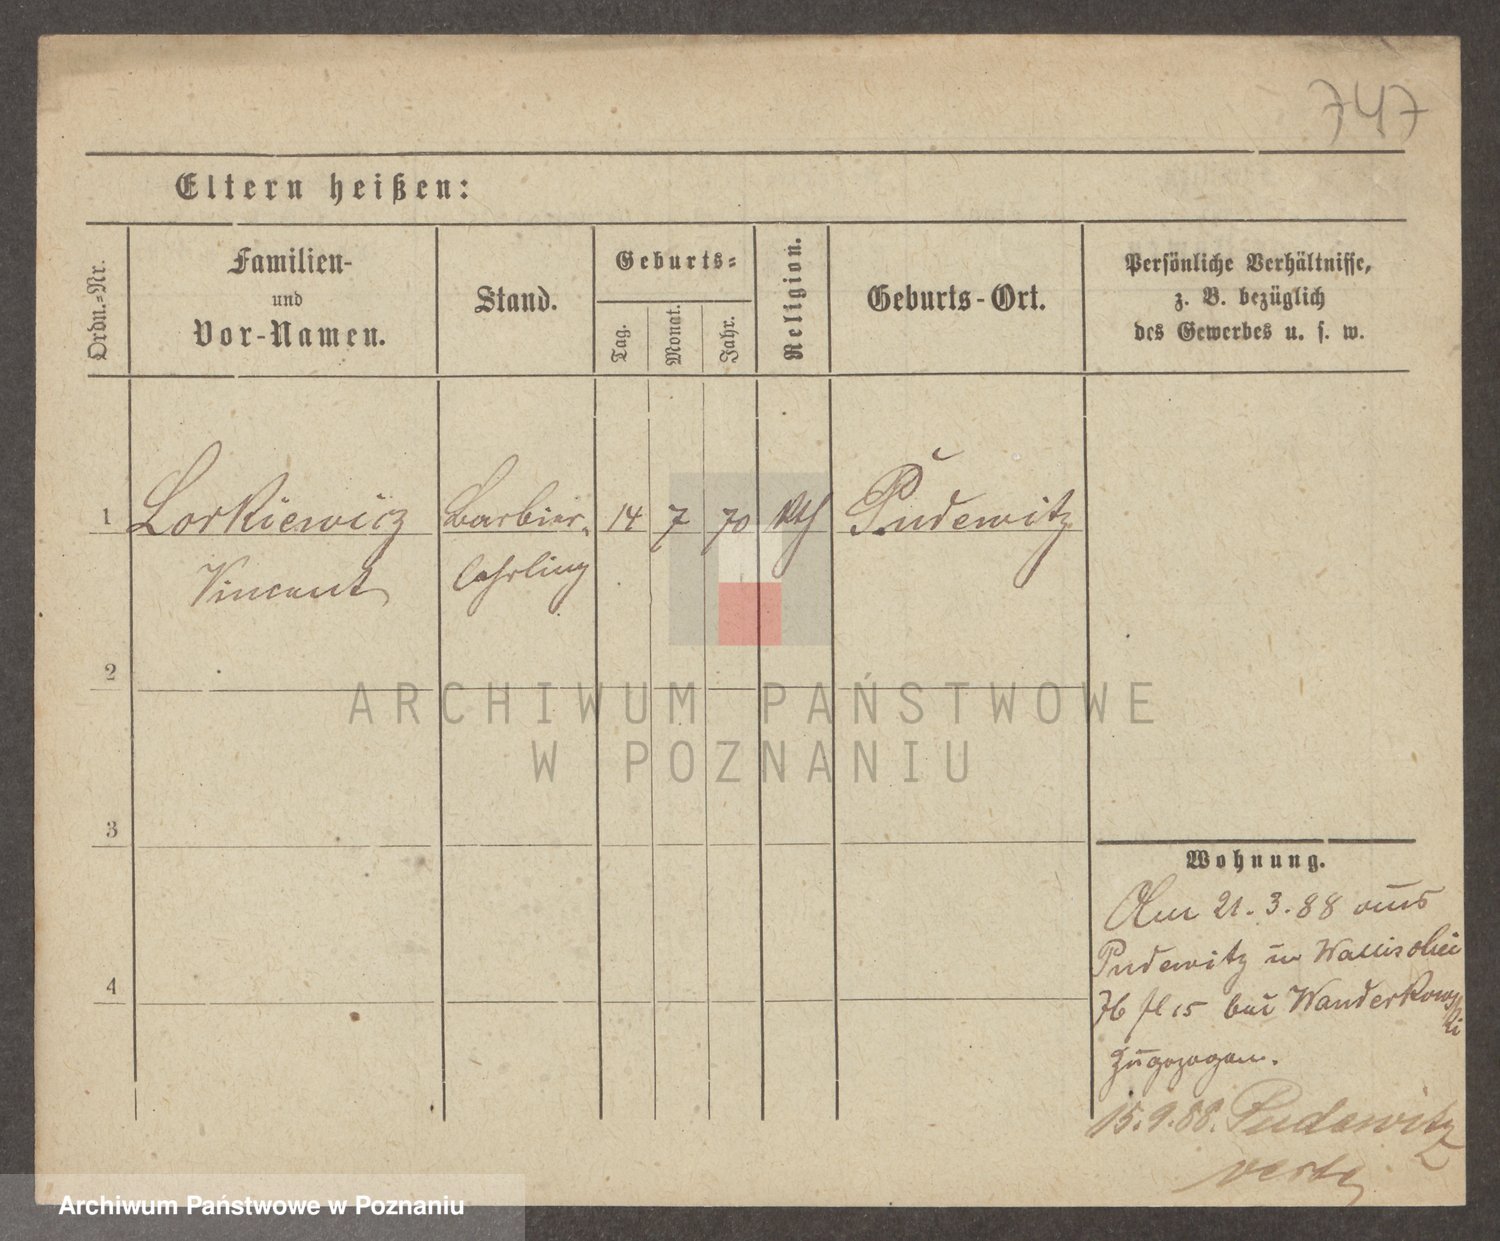 747
Eltern heißen:
Ordn.-Nr.
Familien-
und
Vor-Namen.
Stand.
Geburts-
Tag.
Monat.
Jahr.
Religion.
Geburts-Ort.
Persönliche Verhältnisse,
z. B. bezüglich
des Gewerbes u. s. w.
1 Lorkiewicz Barbier- 14 7 70 kth Pudewitz
Vincent lehrling
2
3
4
Wohnung.
Am 21.3.88 aus
Pudewitz in Wallischei
76 bei Wanderkows
ki
zugezogen.
15.9.88. Pudewitz
ARCHIWUM PAŃSTWOWE
W POZNANIU
Archiwum Państwowe w Poznaniu